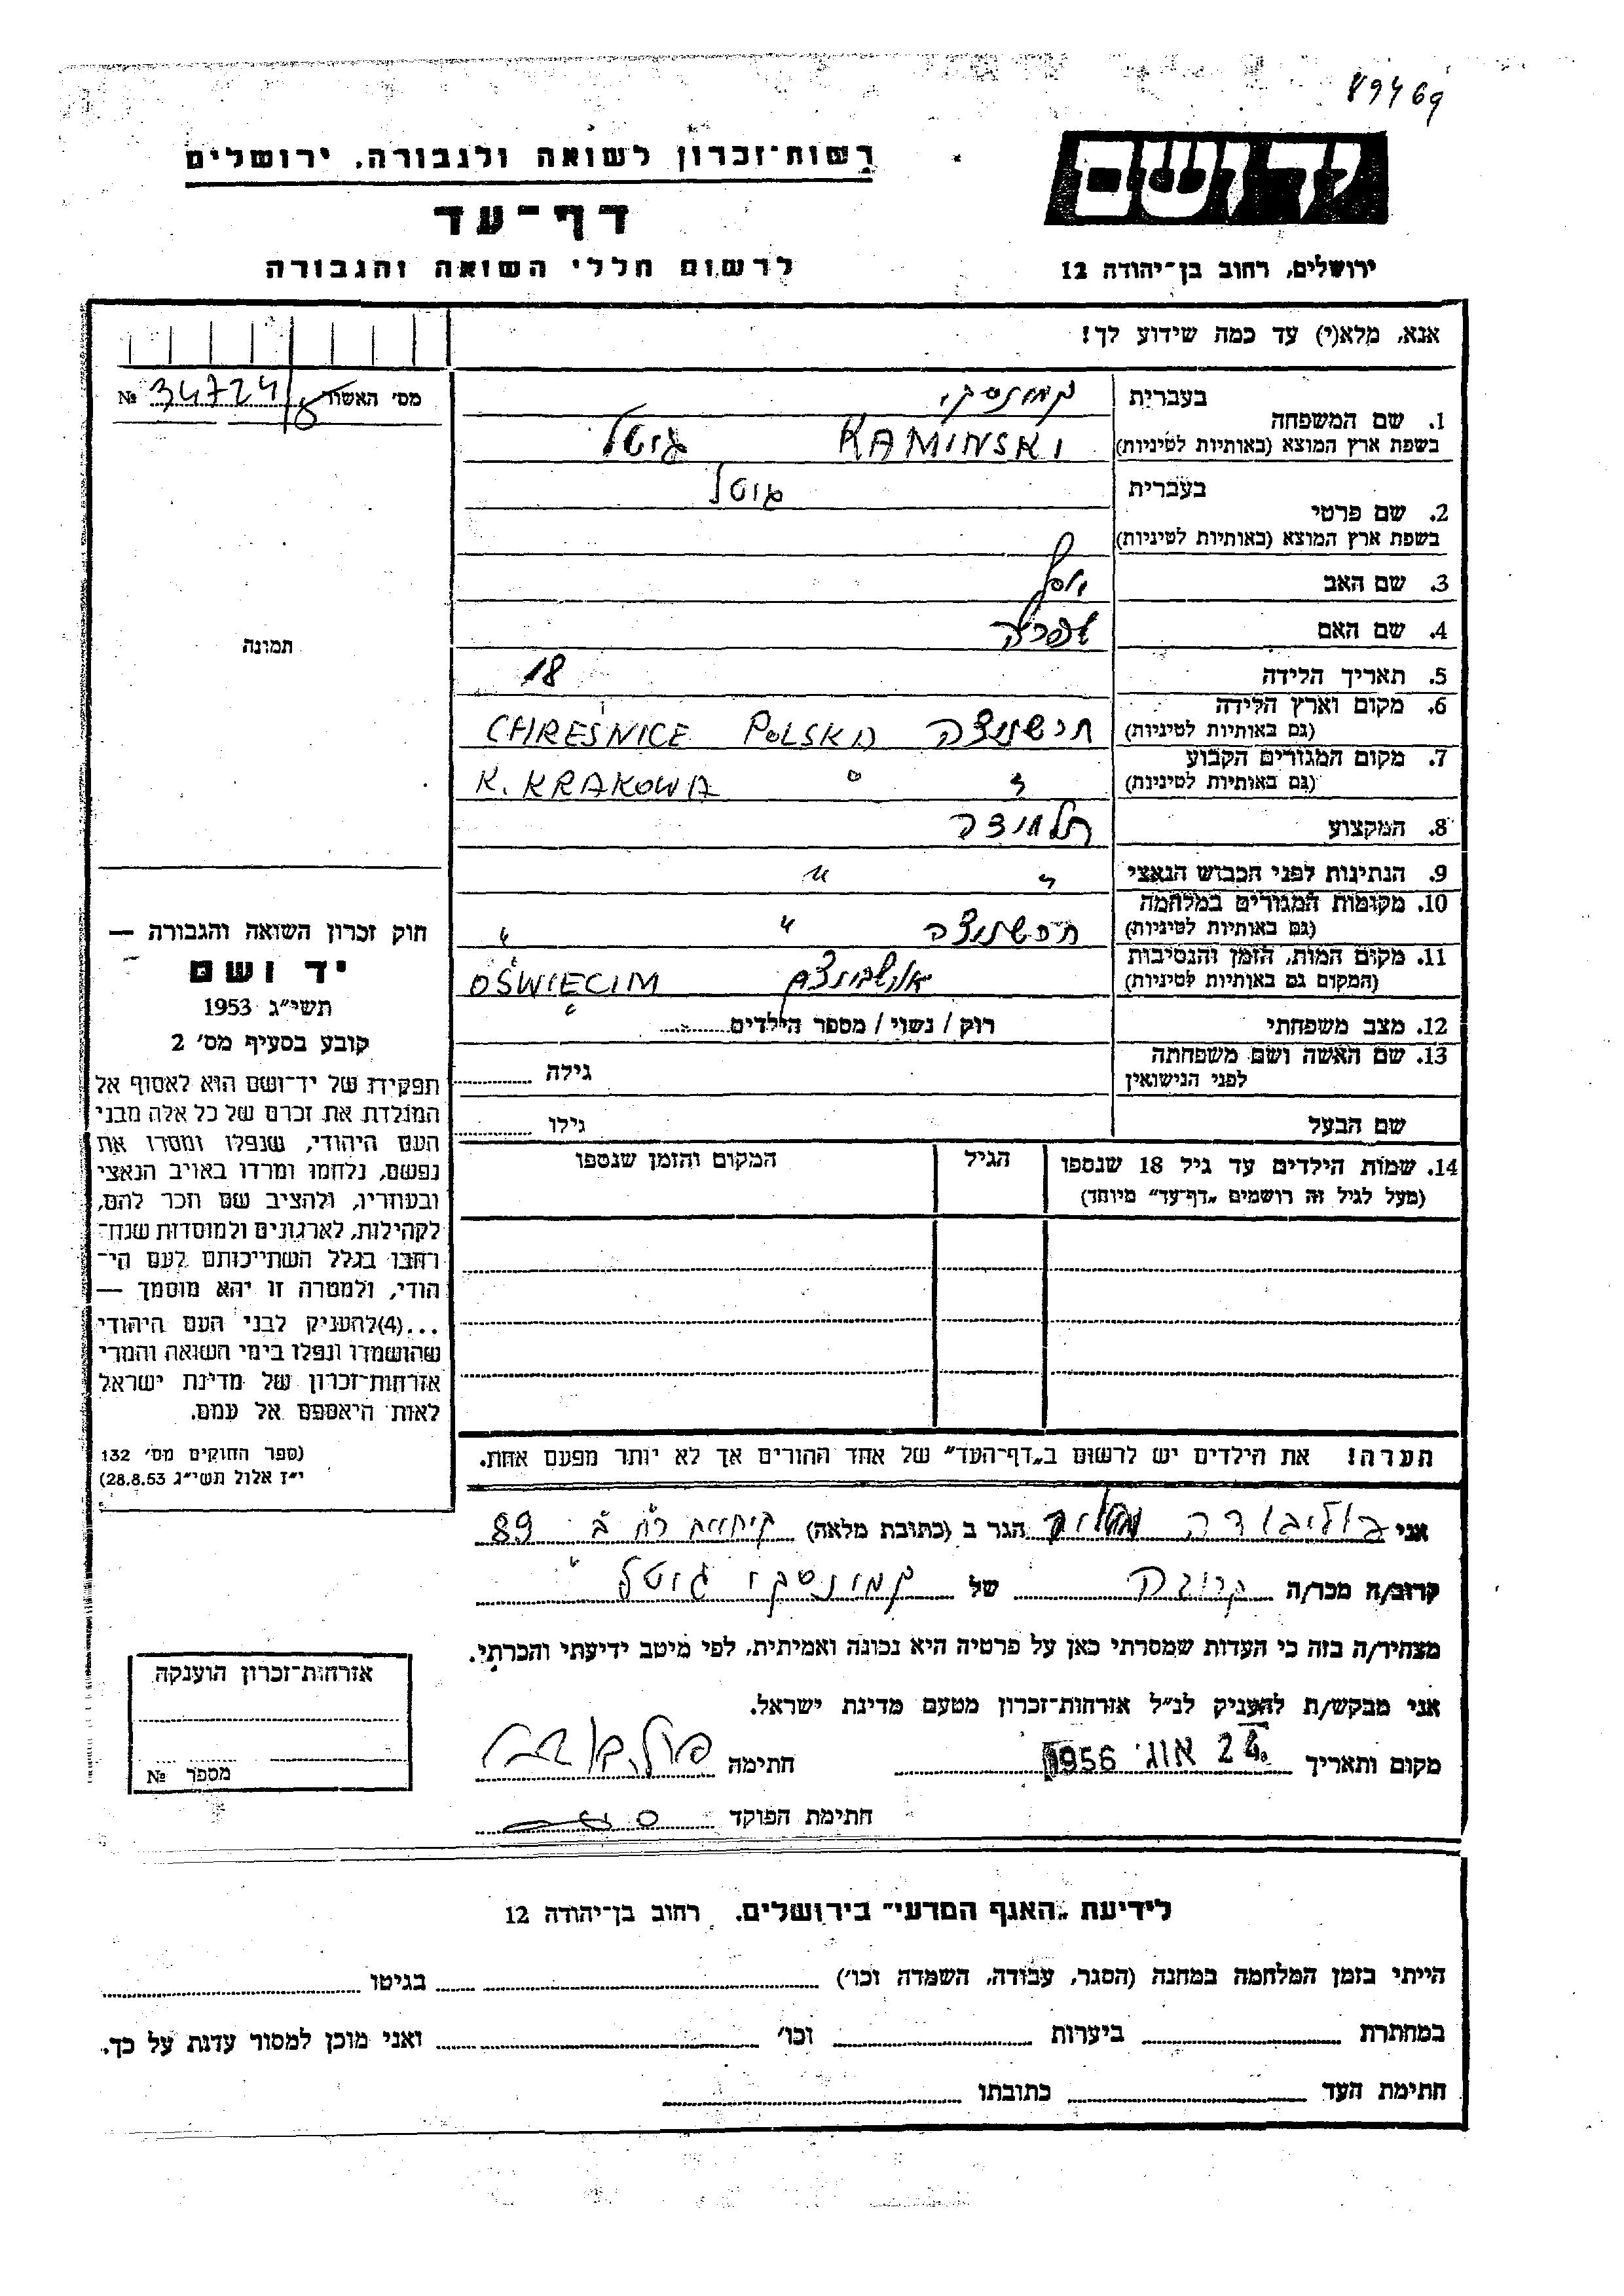 89469
יד ושם
רשות־זכרון לשואה ולגבורה, ירושלים
דף־עד
לרשום חללי השואה והגבורה
ירושלים, רחוב בן־יהודה 12
אנא, מלא(י) עד כמה שידוע לך!
מס׳ האשור 34724 №
בעברית קמינסקי
1. שם המשפחה
בשפת ארץ המוצא (באותיות לטיניות) KAMINSKI גוטל
בעברית גוטל
2. שם פרטי
בשפת ארץ המוצא (באותיות לטיניות)
3. שם האב יוסף
4. שם האם שפרה
תמונה
5. תאריך הלידה 18
6. מקום וארץ הלידה
(גם באותיות לטיניות) CHRESNICE POLSKA
7. מקום המגורים הקבוע
(גם באותיות לטיניות) " " K. KRAKOWA
8. המקצוע תלמידה
9. הנתינות לפני הכבוש הנאצי " "
10. מקומות המגורים במלחמה
(גם באותיות לטיניות) " "
11. מקום המות, הזמן והנסיבות
(המקום גם באותיות לטיניות) OŚWIECIM
12. מצב משפחתי רוק / נשוי / מספר הילדים
13. שם האשה ושם משפחתה
לפני הנישואין גילה
שם הבעל גילו
14. שמות הילדים עד גיל 18 שנספו הגיל המקום והזמן שנספו
(מעל לגיל זה רושמים „דף־עד” מיוחד)
חוק זכרון השואה והגבורה —
יד ושם
תשי״ג 1953
קובע בסעיף מס׳ 2
תפקידת של יד־ושם הוא לאסוף אל
המולדת את זכרם של כל אלה מבני
העם היהודי, שנפלו ומסרו את
נפשם, נלחמו ומרדו באויב הנאצי
ובעוזריו, ולהציב שם וזכר להם,
לקהילות, לארגונים ולמוסדות שנח־
רבו בגלל השתייכותם לעם הי־
הודי, ולמטרה זו יהא מוסמך —
...(4)להעניק לבני העם היהודי
שהושמדו ונפלו בימי השואה והמרי
אזרחות־זכרון של מדינת ישראל
לאות היאספם אל עמם.
(ספר החוקים מס׳ 132
י״ז אלול תשי״ג 28.8.53)
הערה! את הילדים יש לרשום ב„דף־העד” של אחד ההורים אך לא יותר מפעם אחת.
אני הגר ב (כתובת מלאה) 89
קרוב/ה מכר/ה קרובה של קמינסקי גוטל
מצהיר/ה בזה כי העדות שמסרתי כאן על פרטיה היא נכונה ואמיתית, לפי מיטב ידיעתי והכרתי.
אני מבקש/ת להעניק לנ״ל אזרחות־זכרון מטעם מדינת ישראל.
מקום ותאריך 24 אוג׳ 1956 חתימה
חתימת הפוקד
אזרחות־זכרון הוענקה
מספר №
לידיעת „האגף המדעי” בירושלים, רחוב בן־יהודה 12
הייתי בזמן המלחמה במחנה (הסגר, עבודה, השמדה וכו׳) בגיטו
במחתרת ביערות וכו׳ ואני מוכן למסור עדות על כך.
חתימת העד כתובתו